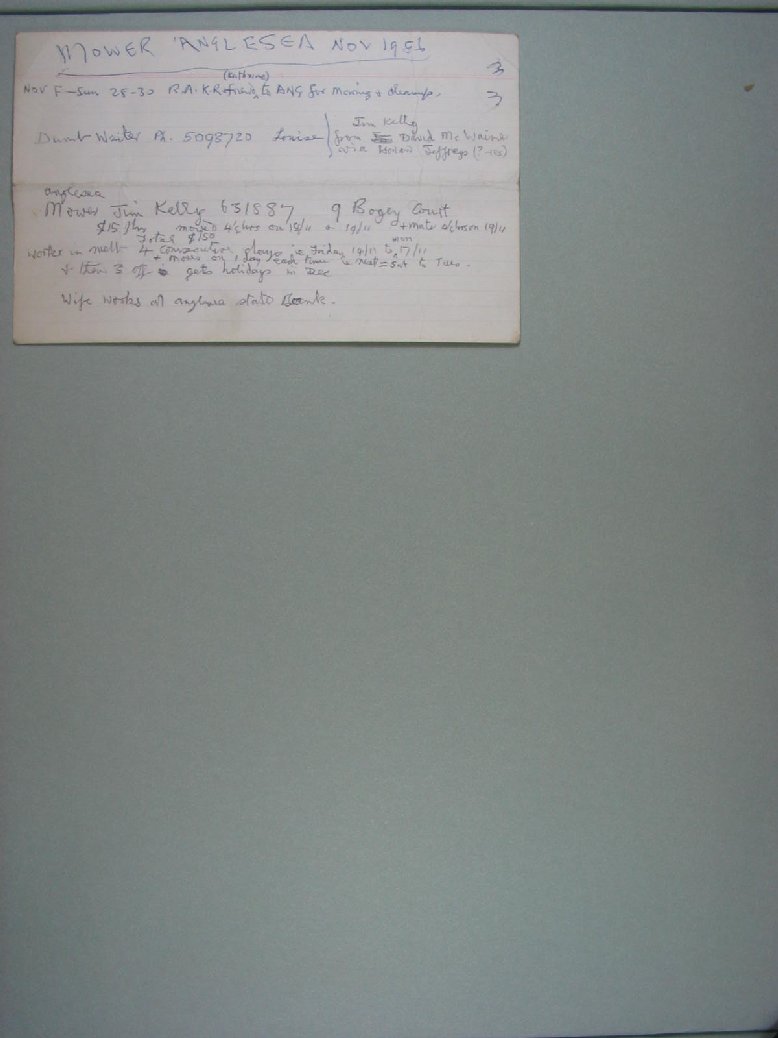 MOWER ANGLESEA NOV 1986
3
(Katherine)
NOV F-Sun 28-30 R.A. K.R. to ANG for mowing & cleanup.
3
Dumb Waiter Ph. 5098720 Louise
Jim Kelly
from David Mc
via Jeffreys (?-res)
anglesea
Mower Jim Kelly 631887 9 Bogey Court
$15/hr mowed 4½hrs on 18/11 & 19/11 + mate 4½hrs on 19/11
Total $150
mon
works in melt 4 consecutive days ie Friday 14/11 to 17/11
+ moves on 1 day each time ie next = Sat to Tues.
& then 3 off gets holidays in Dec
Wife works at anglesea state Bank.